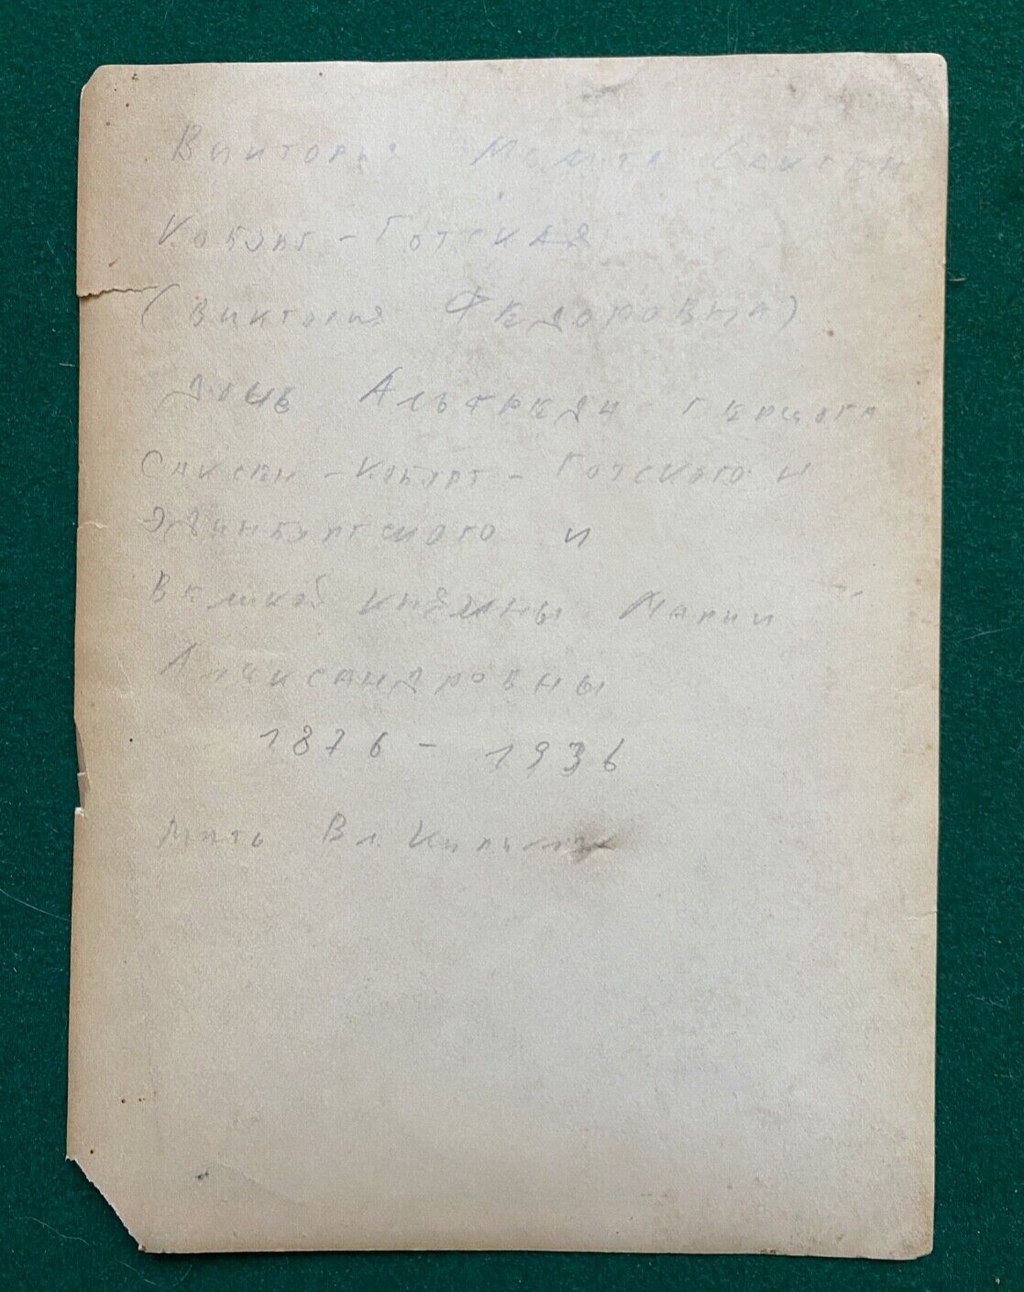 Виктория Мелита Саксен
Кобург-Готская
(Виктория Федоровна)
дочь Альфреда герцога
Саксен-Кобург-Готского и
Эдинбургского и
Великой княжны Марии
Александровны
1876 - 1936
мать Вл. Кирилл